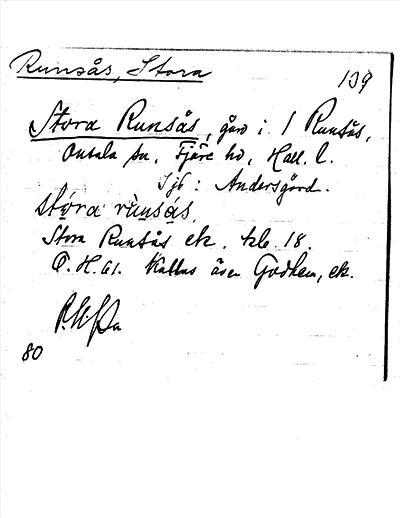 Runsås, Stora
139
Stora Runsås, gård i 1 Runsås,
Onsala sn, Fjäre hd, Hall. l.
Jfb: Andersgård.
stóra rùnsás.
Stora Runsås ek. kb. 18.
Ö.H.61. Kallas även Godhem, ek.
80